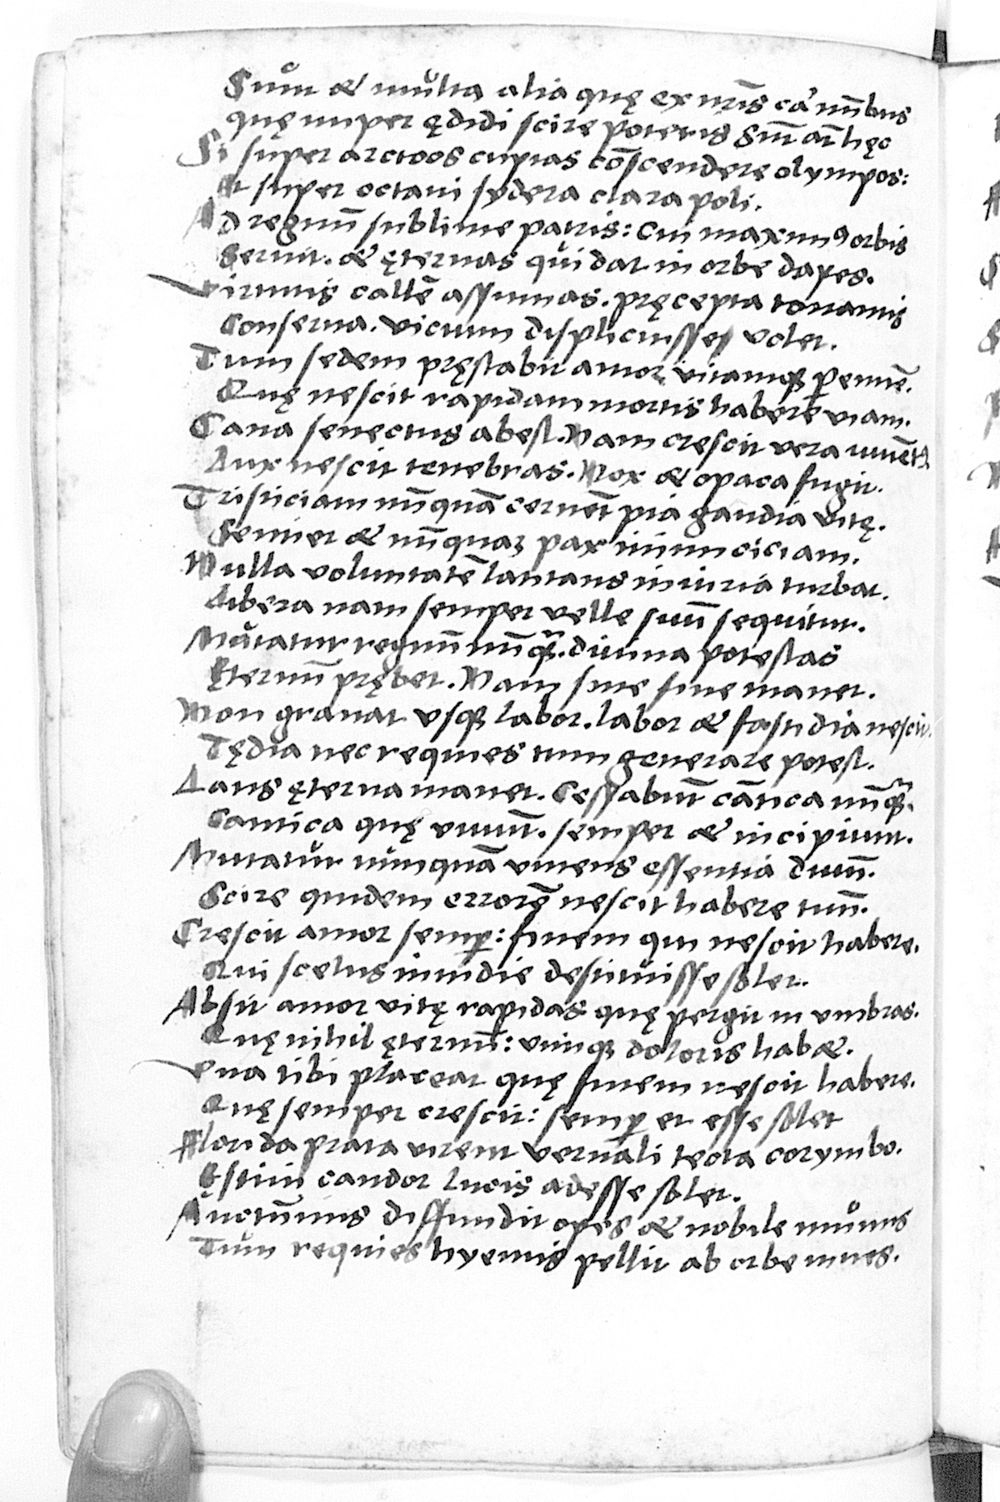 Sunt & multa alia quę ex nr̄is carmībus
quę nuper ędidi scire poteris Sūt aūt hęc
Si super arctoos cupias cōscendere olympos:
At super octaui sydera clara poli.
Ad regnū sublime patris: cui maximꝰ orbis
Seruit. & ęternas qui dat in orbe dapes.
Virtutis callē assumas. pręcepta tonantis
Conserua. vicium displicuisse volet.
Tum sedem pręstabit amor vitamqꝫ ꝑennē.
Quę nescit rapidam mortis habere viam.
Cana senectus abest. Nam crescit vera iuuētꝰ
Lux nescit tenebras. Nox & opaca fugit.
Tristiciam nūquā cernēt pia gaudia vitę.
Sentiet & nūquaꝫ pax inimiciciam.
Nulla voluntatē lantans iniuria turbat.
Libera nam semper velle suū sequitur.
Mutatur regnū nūqꝫ. diuina potestas
Ęternū prębet. Nam sine fine manet.
Non grauat vsqꝫ labor. labor & fastidia nescit.
Tędia nec requies tum generare potest.
Laus ęterna manet. Cessabūt cātica nūqꝫ.
Cantica quę viuūt. semper & incipiunt.
Mutatur nunquā viuens essentia diuū.
Scire quidem errorē nescit habere tuū.
Crescit amor semꝑ: finem qui nescit habere.
Qui scelus inuidie destituisse solet.
Absit amor vitę rapidas quę pergit in vmbras.
Quę nihil ęternū: vimqꝫ doloris hab&.
Vna tibi placeat quę finem nescit habere.
Quę semper crescit: semꝑ et esse solet
Florida prata virent vernali tecta corymbo.
Ęstiui candor lucis adesse solet.
Auctūnus diffundit opes & nobile munus
Tum requies hyemis pellit ab orbe niues.